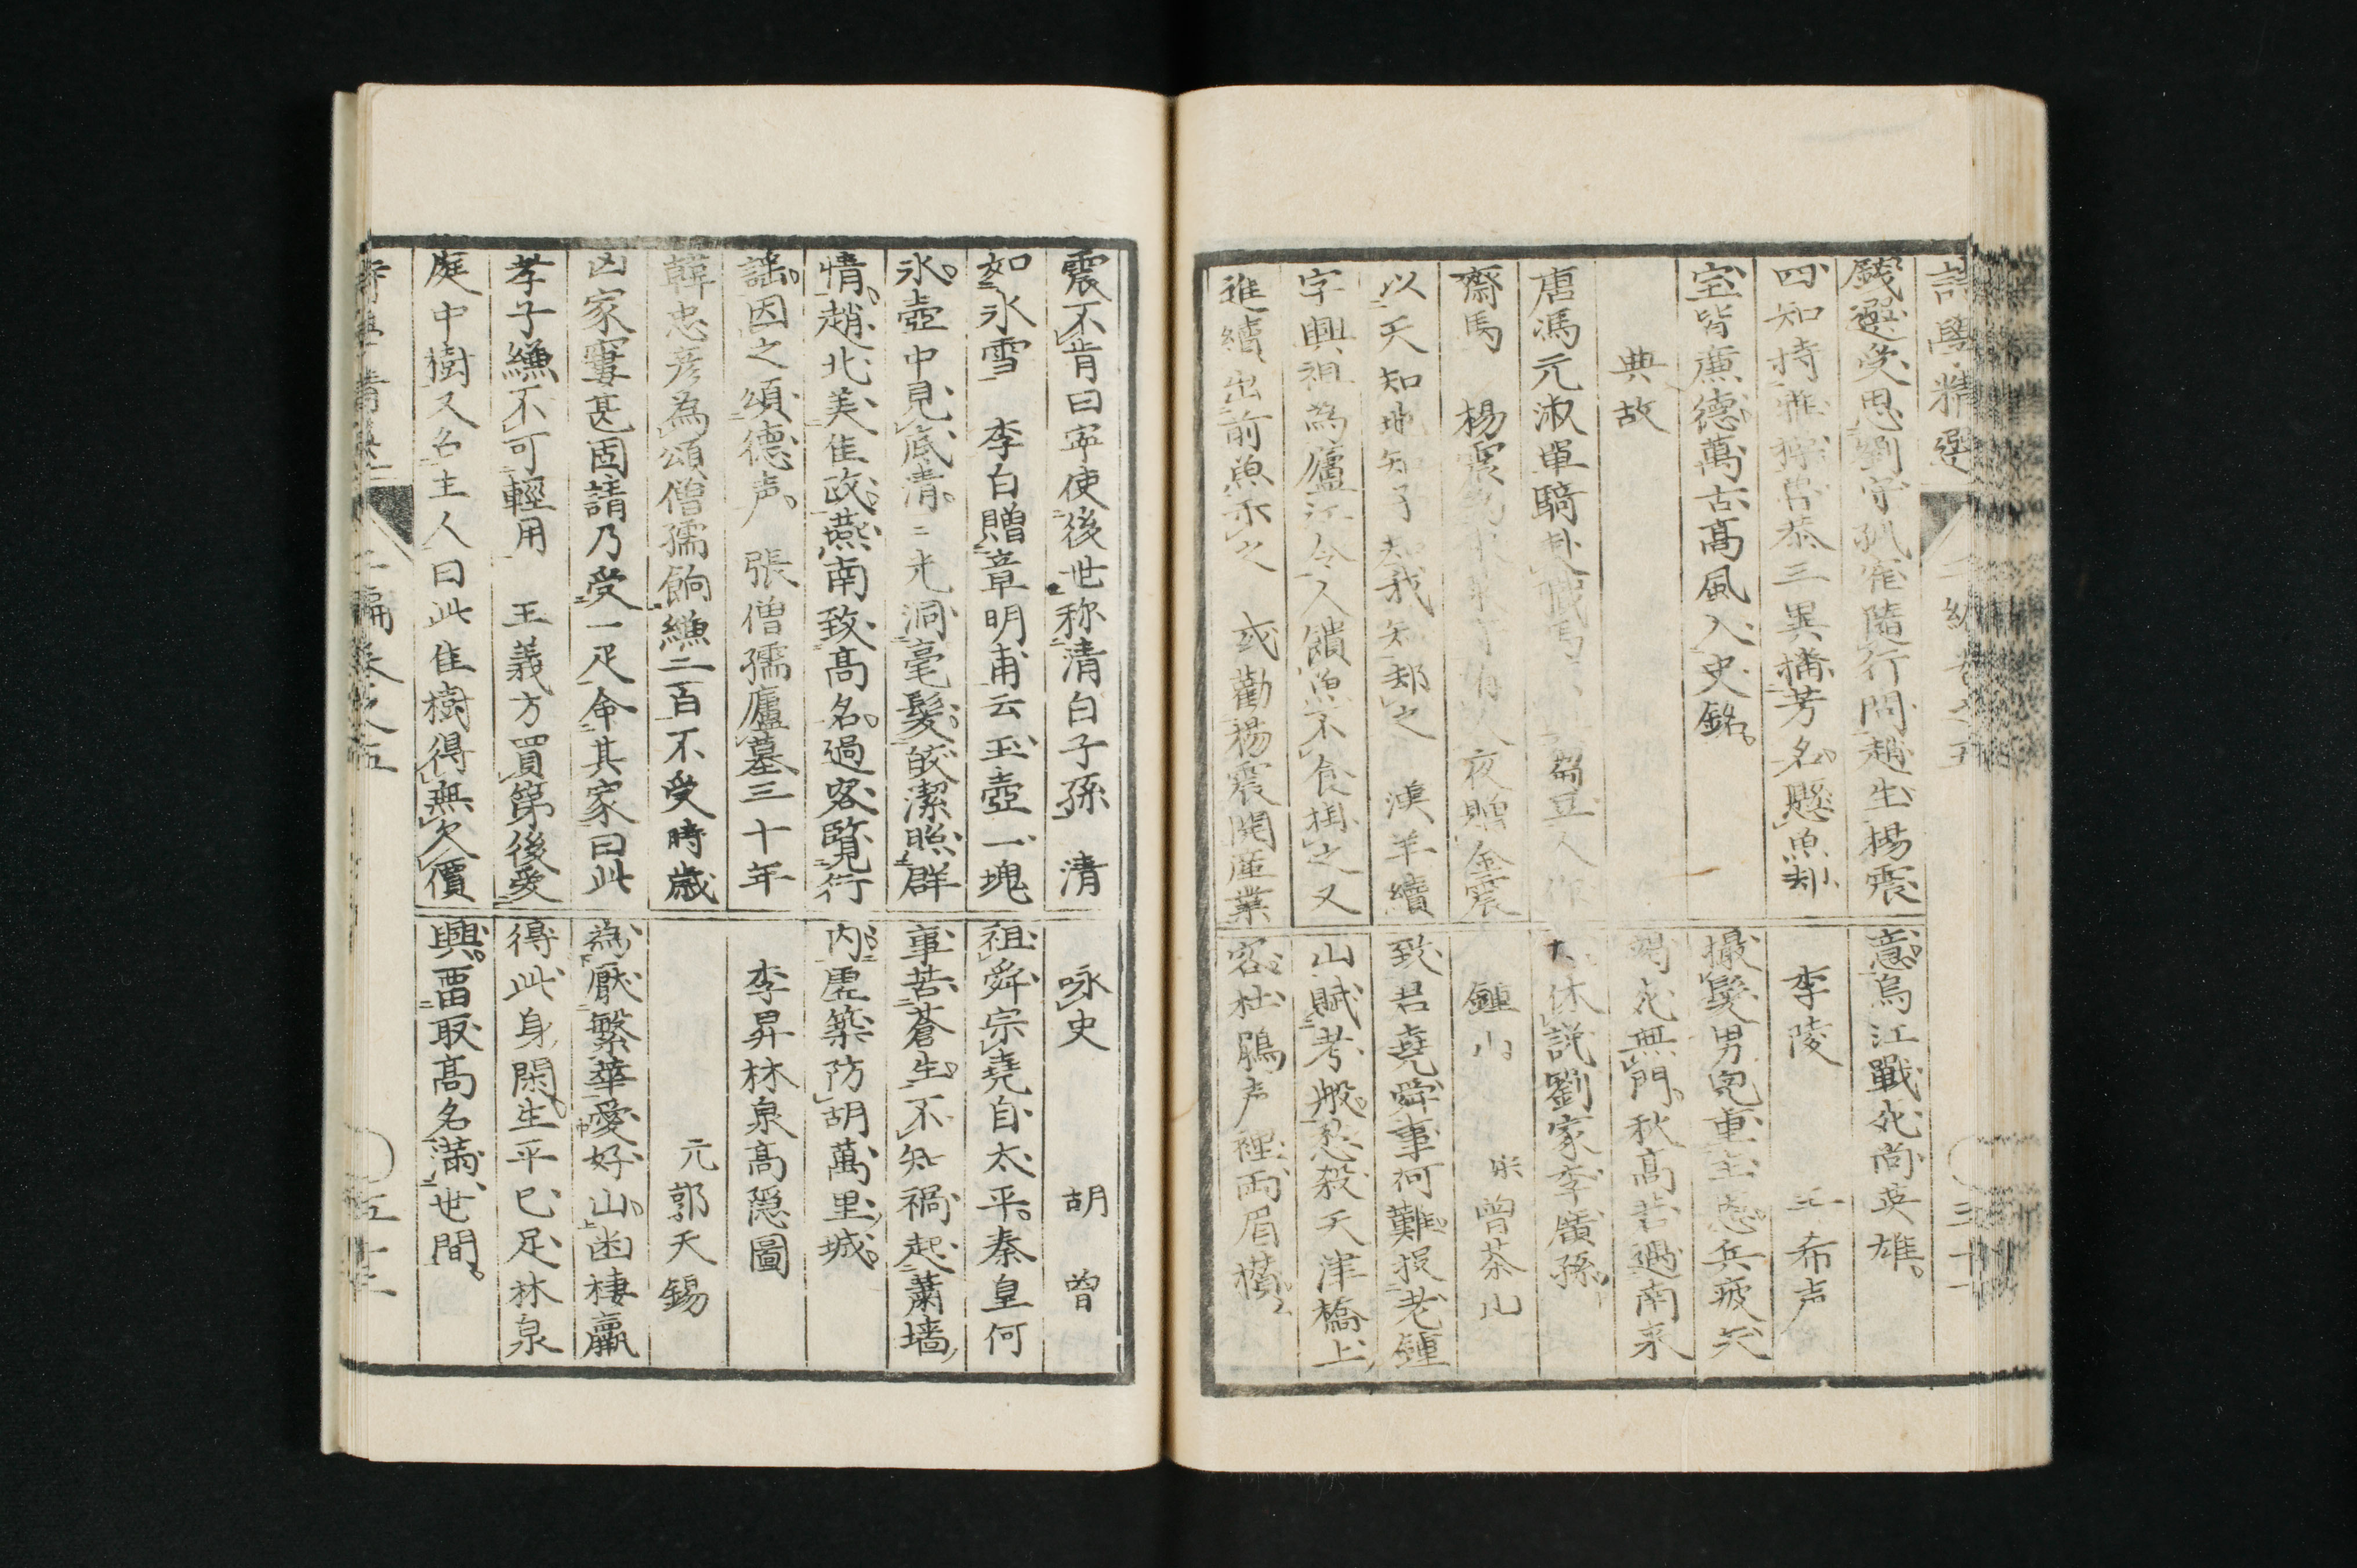 詩學精選
二編卷之五
三十一
錢選受恩劉守孤寵隨行問趙生楊震
四知持
呂恭三異搆芳名懸魚却
宝皆廉德萬古高風入史銘
典故
唐馮元淑單騎赴職馬
芻豆人作
齋馬　楊震為
夜贈金震
以天知地知子知我知却之　漢羊續
字興祖為廬江令人饋魚不食掛之又
進續出前魚示之　或勸楊震開產業
意烏江戰死尚英雄
李陵
希声
撮髮男兒重主恩兵疲矢
竭死無門秋高若遇南來
休說劉家李廣孫
鍾山
宋曾茶山
致君堯舜事何難投老鍾
山賦考槃愁殺天津橋上
客杜鵑声裡両眉攢
震不肯曰寧使後世称清白子孫　清
如氷雪　李白贈韋明甫云玉壺一塊
氷壺中見底清清光洞毫髮皎潔照群
情趙北美隹政燕南致高名過客覧行
謡因之頌德声　張僧孺廬墓三十年
韓忠彦為頌僧孺餉縑二百不受時歲
凶家窶甚固請乃受一疋命其家曰此
孝子縑不可輕用　王義方買第後愛
庭中樹又名主人曰此隹樹得無欠價
詠史　胡曾
祖舜宗堯自太平秦皇何
事苦蒼生不知禍起蕭墻
内虚築防胡萬里城
李昇林泉高隠圖
元郭天錫
為厭繁華愛好山幽棲贏
得此身閑生平已足林泉
興畱取高名滿世間
二編卷之五